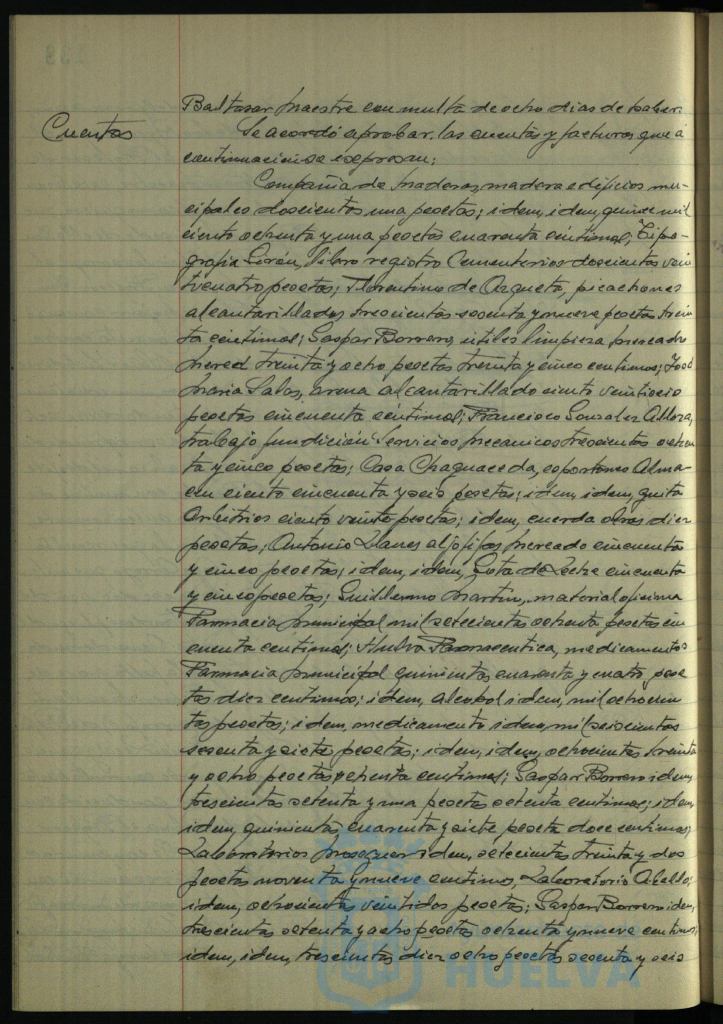 Baltasar Maestre con multa de ocho dias de haber.
Cuentas
Se acordó aprobar las cuentas y facturas que á
continuación se expresan;
Compañia de Maderas, madera edificios mu-
cipales doscientas una pesetas; idem, idem, quince mil
ciento ochenta y una pesetas cuarenta céntimos; Tipo-
grafia Girón, libro registro Cementerios doscientas vein
ticuatro pesetas; Florentino de Azqueta, picachones
alcantarillados trescientas sesenta y nueve pesetas trein
ta céntimos; Gaspar Borrero, útiles limpieza Mercado
Merced treinta y ocho pesetas treinta y cinco centimos; José
Maria Salas, arena alcantarillado ciento veintiseis
pesetas cincuenta céntimos; Francisco Gonzalez
trabajo fundición Servicios Mecanicos trescientas ochen
ta y cinco pesetas; Casa Chaguaceda, esportones Alma-
cen ciento cincuenta y seis pesetas; idem, idem,
Arbitrios ciento veinte pesetas; idem, cuerda obras diez
pesetas; Antonio Llanes aljofifas Mercado cincuenta
y cinco pesetas; idem, idem, Gota de Leche cincuenta
y cinco pesetas; Guillermo Martin, material oficina
Farmacia Municipal mil setecientas ochenta pesetas cin
cuenta centimos; Huelva Farmaceutica, medicamentos
Farmacia Municipal quinientas cuarenta y cuatro pese
tas diez centimos; idem, alcohol idem, mil ochocien
tas pesetas; idem, medicamento idem, mil seiscientas
sesenta y siete pesetas; idem, idem, ochocientas treinta
y ocho pesetas ochenta centimos; Gaspar Borrero idem,
trescientas setenta y una pesetas setenta centimos; idem
idem, quinientas cuarenta y siete peseta doce centimos;
Laboratorios idem, setecientas treinta y dos
pesetas noventa y nueve centimos, Laboratorio Abelló;
idem, ochocientas veintidos pesetas; Gaspar Borrero idem,
trescientas setenta y ocho pesetas ochenta y nueve centimos;
idem, idem, trescientas diez ocho pesetas sesenta y seis
HUELVA